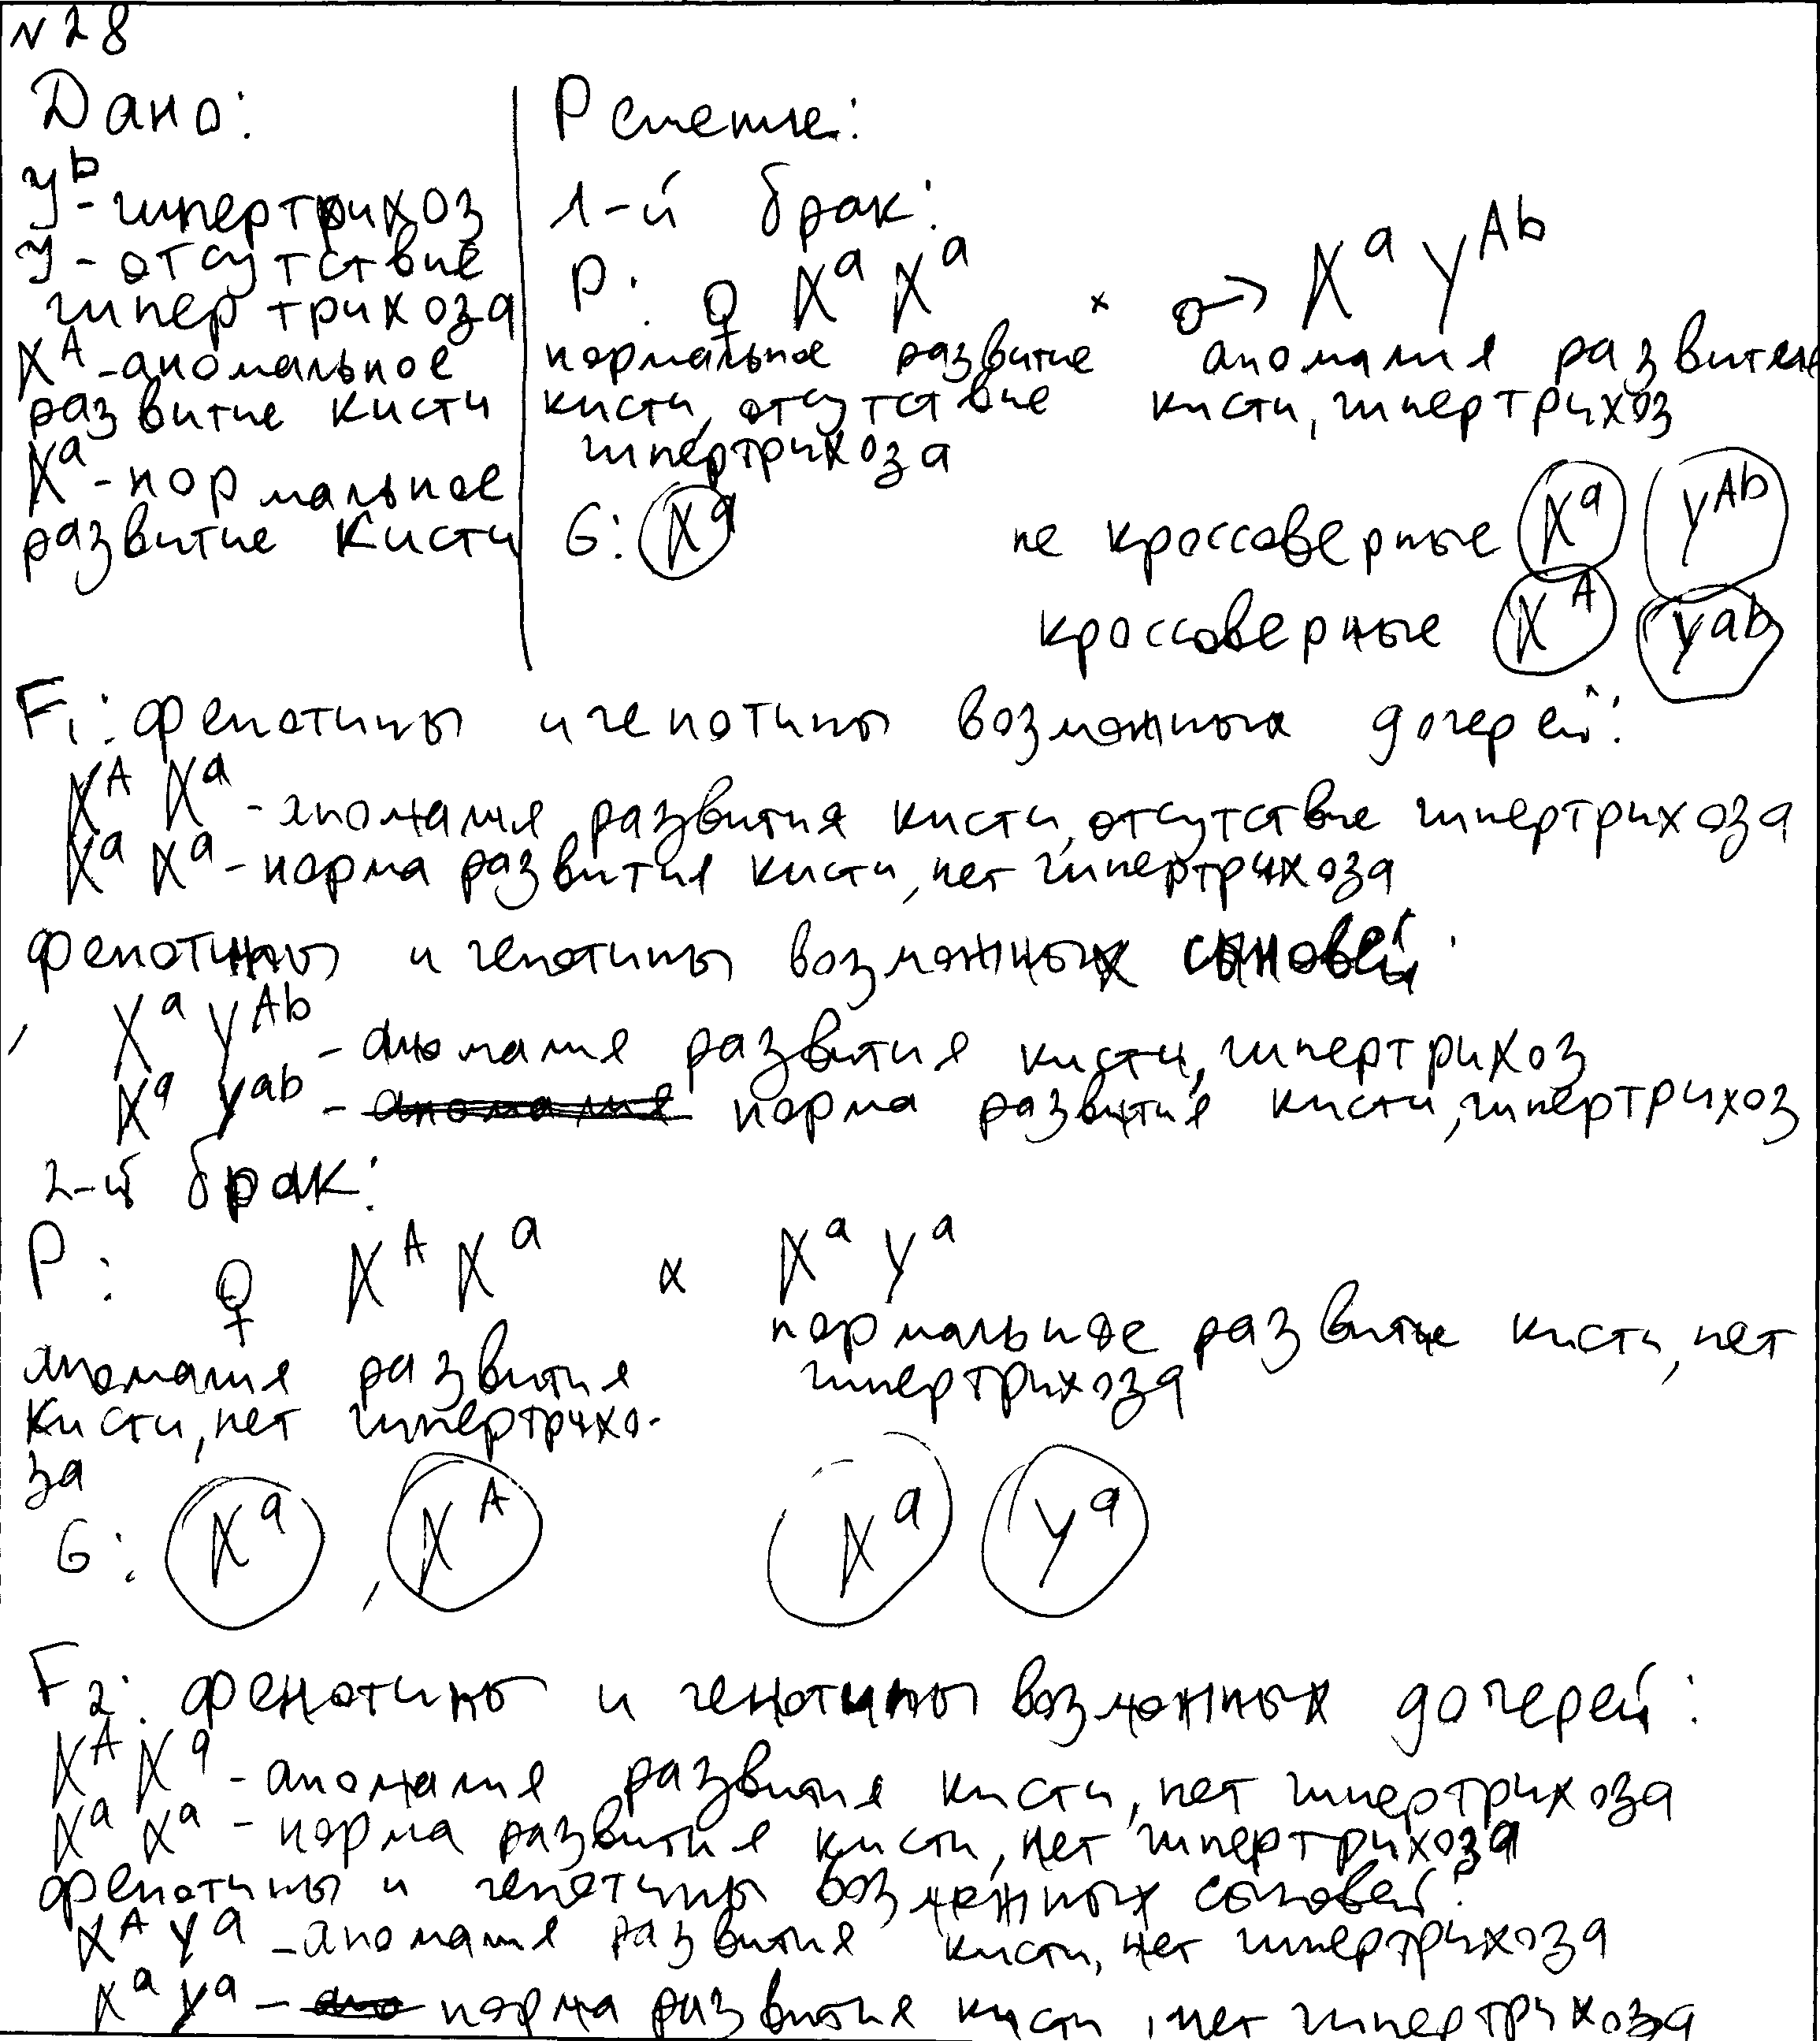 N 28
Дано:
У^b - гипертрихоз
У - отсутствие
гипертрихоза
X^A - аномальное
развитие кисти
X^a - нормальное
развитие кисти
Решение:
1-й брак:
P: ♀ X^a X^a × ♂ X^a Y^Ab
нормальное развитие аномалия развития
кисти, отсутствие кисти, гипертрихоз
гипертрихоза
G: X^a не кроссоверные X^a Y^Ab
кроссоверные X^A Y^ab
F1: фенотипы и генотипы возможных дочерей:
X^A X^a - аномалия развития кисти, отсутствие гипертрихоза
X^a X^a - норма развития кисти, нет гипертрихоза
фенотипы и генотипы возможных сыновей:
X^a Y^Ab - аномалия развития кисти, гипертрихоз
X^a Y^ab - аномалия норма развития кисти, гипертрихоз
2-й брак:
P: ♀ X^A X^a × X^a Y^a
аномалия развития нормальное развитие кисти, нет
кисти, нет гипертрихо- гипертрихоза
за
G: X^a, X^A X^a Y^a
F2: фенотипы и генотипы возможных дочерей:
X^A X^a - аномалия развития кисти, нет гипертрихоза
X^a X^a - норма развития кисти, нет гипертрихоза
фенотипы и генотипы возможных сыновей:
X^A Y^a - аномалия развития кисти, нет гипертрихоза
X^a Y^a - ано норма развития кисти, нет гипертрихоза